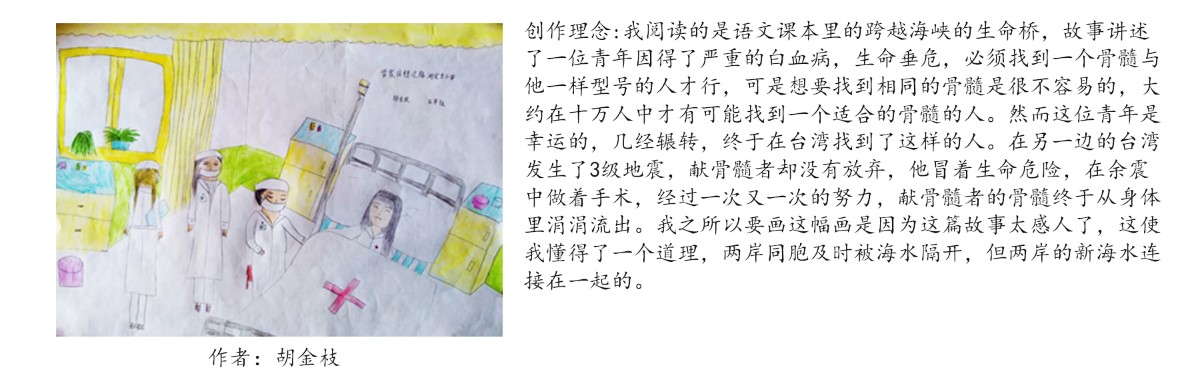 创作理念:我阅读的是语文课本里的跨越海峡的生命桥，故事讲述
了一位青年因得了严重的白血病，生命垂危，必须找到一个骨髓与
他一样型号的人才行，可是想要找到相同的骨髓是很不容易的，大
约在十万人中才有可能找到一个适合的骨髓的人。然而这位青年是
幸运的，几经辗转，终于在台湾找到了这样的人。在另一边的台湾
发生了3级地震，献骨髓者却没有放弃，他冒着生命危险，在余震
中做着手术，经过一次又一次的努力，献骨髓者的骨髓终于从身体
里涓涓流出。我之所以要画这幅画是因为这篇故事太感人了，这使
我懂得了一个道理，两岸同胞及时被海水隔开，但两岸的新海水连
接在一起的。
作者：胡金枝